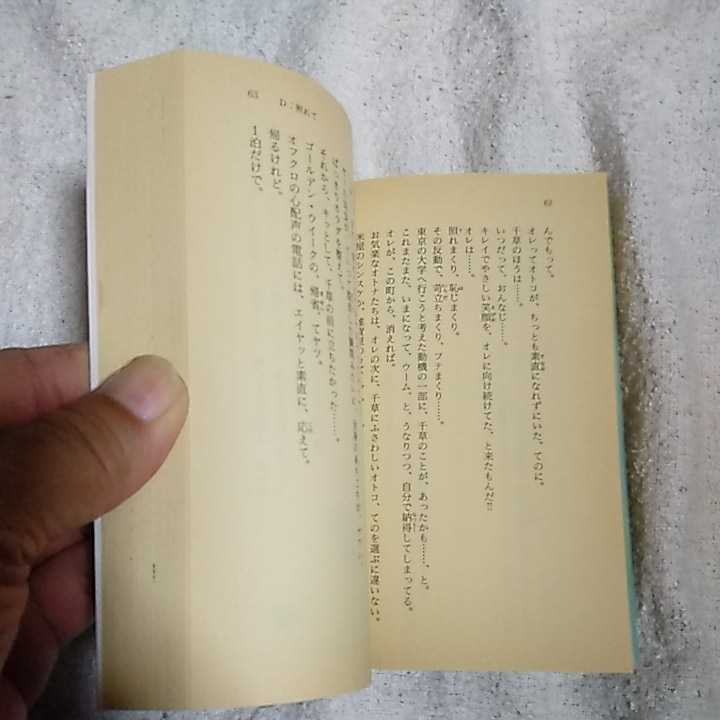 62
んでもって。
オレってオトコが、ちっとも素直になれずにいた、てのに。
千草のほうは……。
いつだって、おんなじ……。
キレイでやさしい笑顔を、オレに向け続けてた、と来たもんだ!!
オレは……。
照れまくり、恥じまくり。
その反動で、苛立ちまくり、ブテまくり……。
東京の大学へ行こうと考えた動機の一部に、千草のことが、あったかも……、と。
これまたまた、いまになって、ウーム、と、うなりつつ、自分で納得してしまってる。
オレが、この町から、消えれば。
お気楽なオトナたちは、オレの次に、千草にふさわしいオトコ、てのを選ぶに違いない。
米屋のシンスケか、
63
D:照れて
それなら、キッとして、千草の前に立ちたかった……。
ゴールデン・ウイークの、帰省、てヤツ。
オフクロの心配声の電話には、エイヤッと素直に、応えて。
帰るけれど。
1泊だけで。